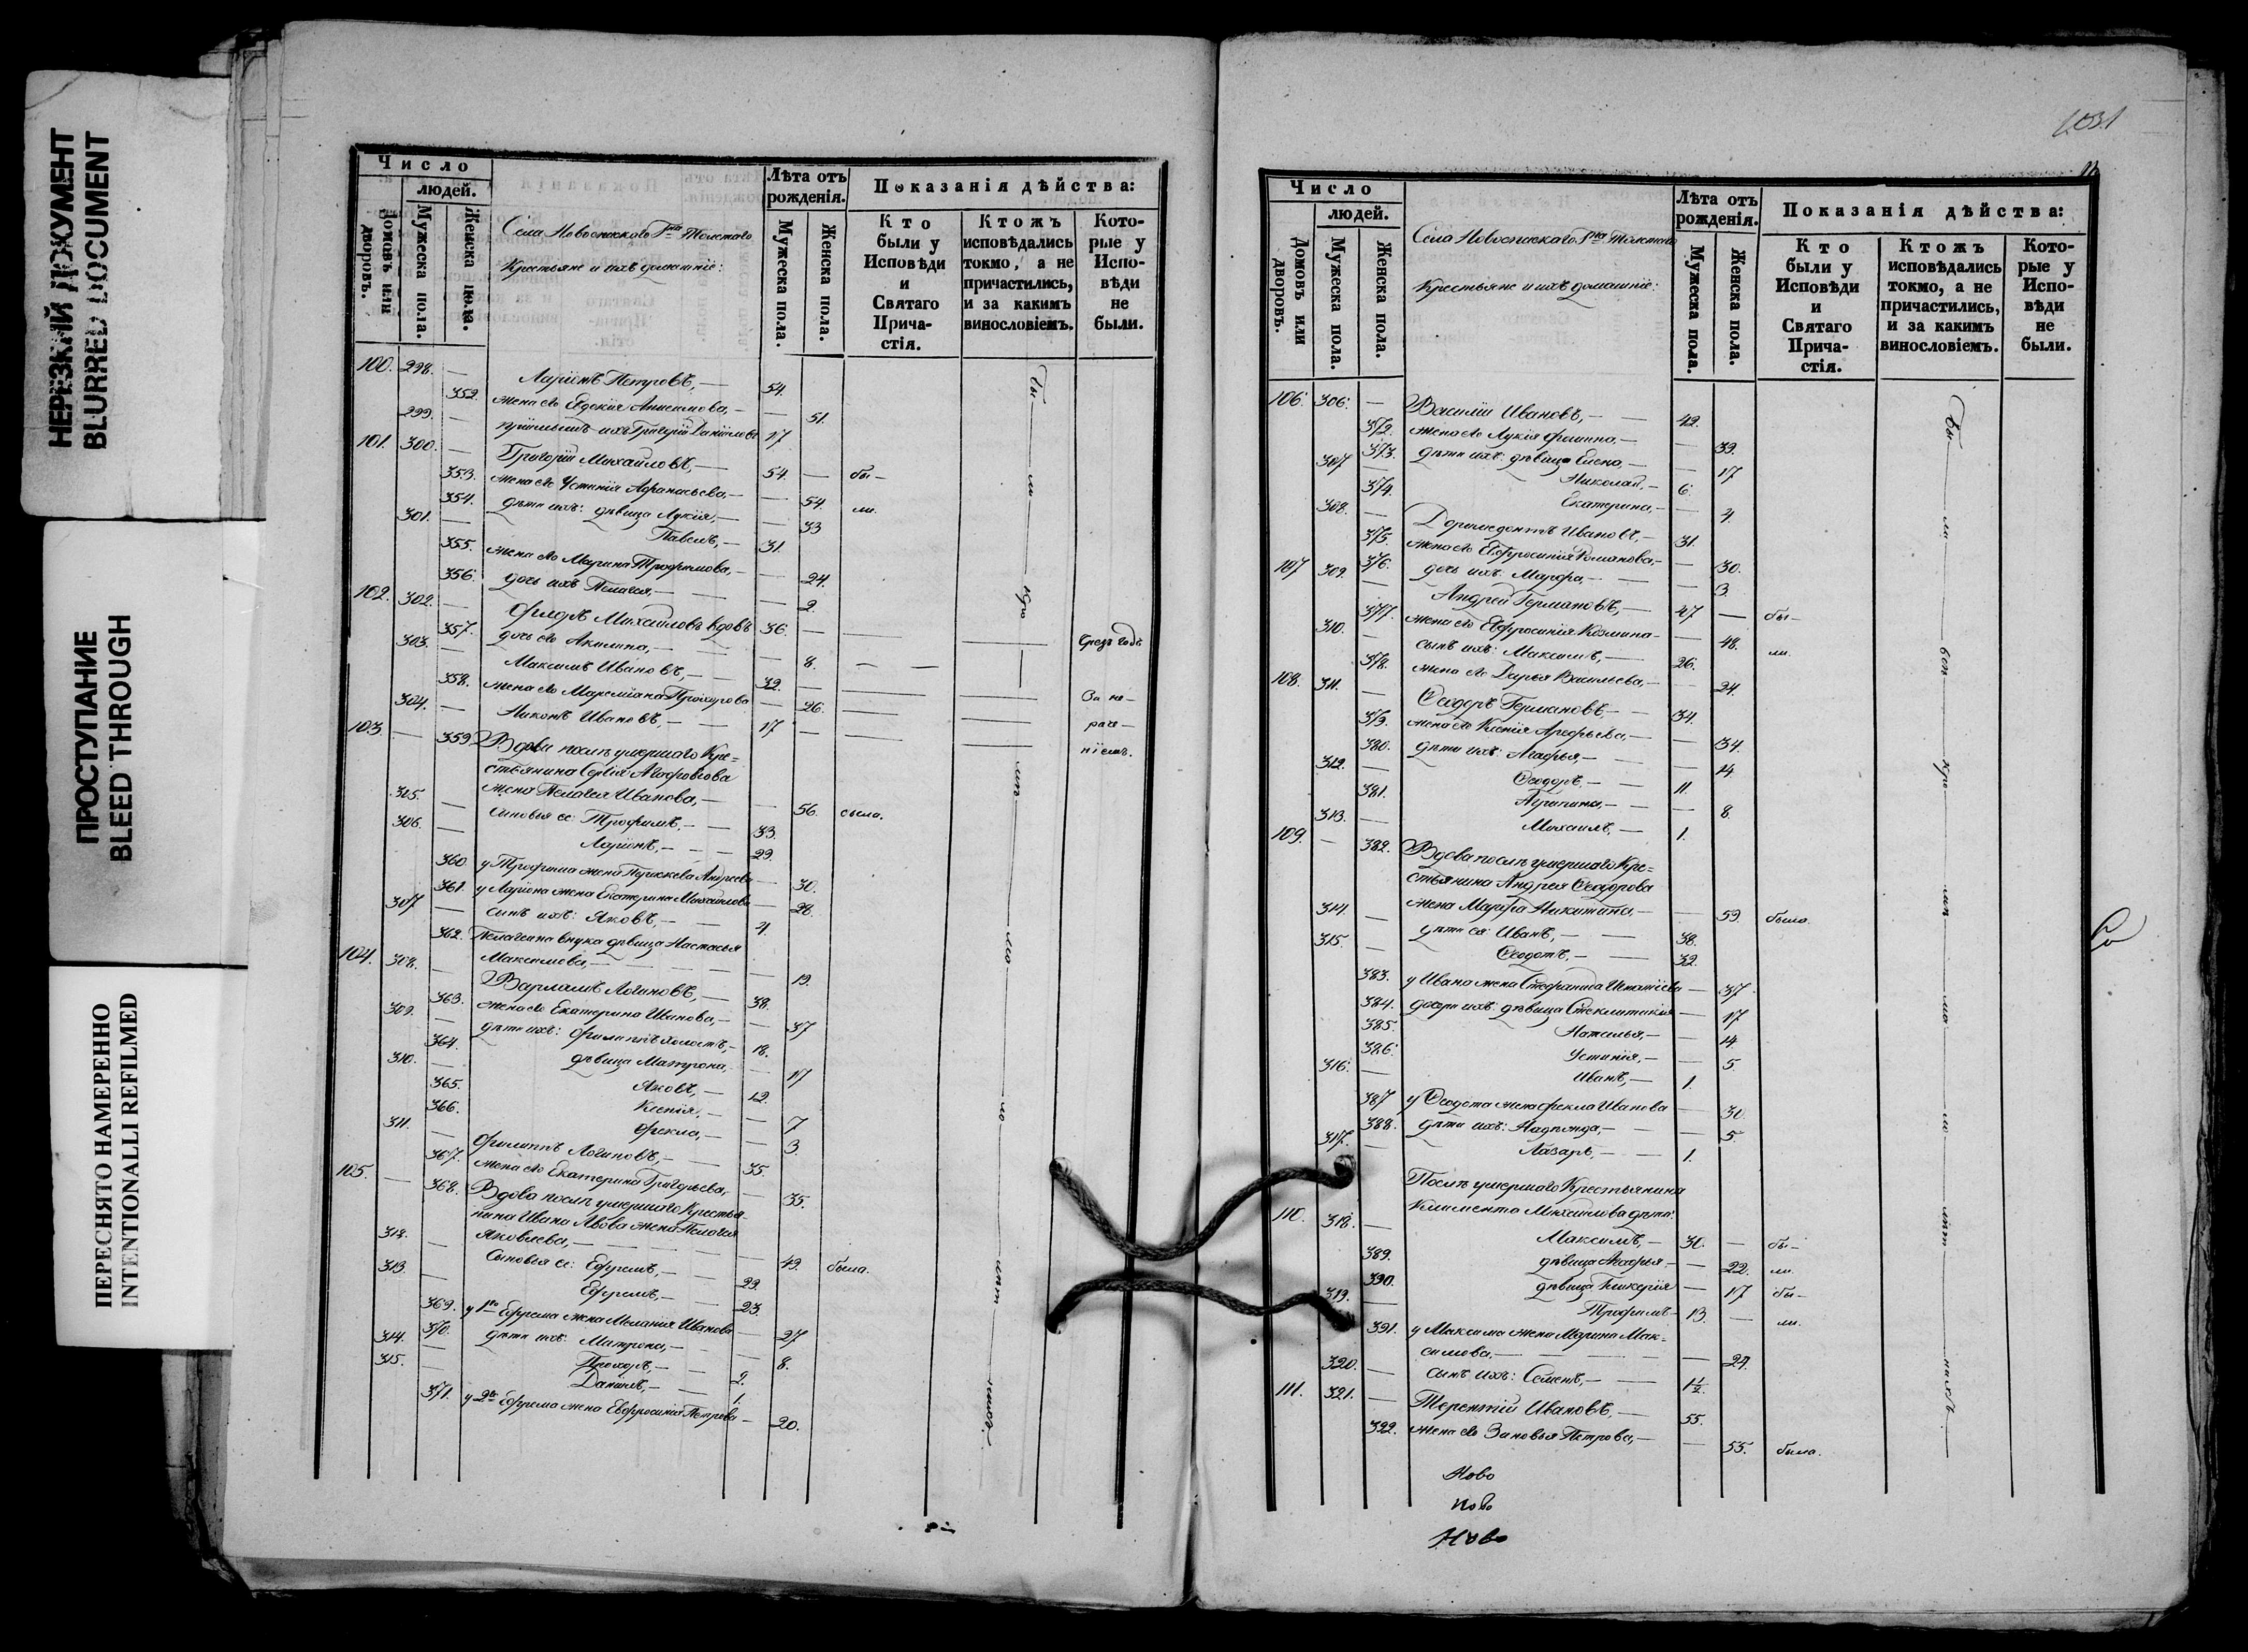 НЕРЕЗКИЙ ДОКУМЕНТ
BLURRED DOCUMENT
ПРОСТУПАНИЕ
BLEED THROUGH
ПЕРЕСНЯТО НАМЕРЕННО
INTENTIONALLI REFILMED
Число
людей.
Домовъ или дворовъ.
Мужеска пола.
Женска пола.
Села Толстаго
Крестьяне и ихъ домашніе:
Лѣта отъ рожденія.
Мужеска пола.
Женска пола.
Показанія дѣйства:
Кто были у Исповѣди и Святаго Прича-стія.
Ктожъ исповѣдались токмо, а не причастились, и за какимъ винословіемъ.
Кото-рые у Испо-вѣди не были.
100. 298. — Ларіонъ Петровъ, — 54.
352. жена его Евдокія Анисимова, — — 51.
299. — пріемышъ ихъ Григорій Даніиловъ 17
101. 300. — Григорій Михаиловъ, — 54. — бы-
353. жена его Устинія Афанасьева, — — 54. ли.
354. дѣти ихъ: дѣвица Лукія, — — 33
301. — Павелъ, — 31.
355. жена его Марина Трофимова, — — 24.
356. дочь ихъ Пелагея, — — 2.
102. 302. — Флоръ Михаиловъ вдовъ 36. —
357. дочь его Акилина, — — 8.
303. — Максимъ Ивановъ, — 32. —
358. жена его Прохорова — 26. За не-
304. — Никонъ Ивановъ, — 17 — раче-
ніемъ.
103. — 359. Вдова послѣ умершаго Кре=
стьянина Сергія
жена Пелагея Иванова, — — 56. была.
305. — сыновья ее: Трофимъ, — 33.
306. — Ларіонъ, — 29.
360. у Трофима жена Андреева — 30.
361. у Ларіона жена Екатерина Михаилова — 28.
307 — сынъ ихъ: Яковъ, — 4.
362. Пелагеина внука дѣвица Настасья
Максимова, — — 19.
104. 308. — Варлаамъ Логиновъ, — 38.
363. жена его Екатерина Иванова, — — 37
309. — дѣти ихъ: Филиппъ холостъ, — 18.
364. дѣвица Матрона, — — 17
310. — Яковъ, — 12.
365. Ксенія, — — 7
366. Фекла, — — 3.
311. — Филиппъ Логиновъ, — 35.
367. жена его Екатерина Григорьева, — — 35.
105. — 368. Вдова послѣ умершаго Крестья-
нина Ивана Львова жена Пелагея
Яковлева, — — 49. была.
312. — Сыновья ее: Ефремъ, — 29.
313. — Ефремъ, — 23.
369. у 1го Ефрема жена Меланія Иванова — 27
370. дѣти ихъ: Матрона, — — 8.
314. — Прохоръ, — 2.
315. — Даніилъ, — 1.
371. у 2го Ефрема жена Евфросинія Петрова — 20.
1031
Число
людей.
Домовъ или дворовъ.
Мужеска пола.
Женска пола.
Села Толстаго
Крестьяне и ихъ домашніе:
Лѣта отъ рожденія.
Мужеска пола.
Женска пола.
Показанія дѣйства:
Кто были у Исповѣди и Святаго Прича-стія.
Ктожъ исповѣдались токмо, а не причастились, и за какимъ винословіемъ.
Кото-рые у Испо-вѣди не были.
106. 306. — Василій Ивановъ, — 42.
372. жена его Лукія Фомина, — — 39.
373. дѣти ихъ: дѣвица Елена, — — 17
307 — Николай, — 6.
374. Екатерина, — — 4.
308. — Доримедонтъ Ивановъ, — 31.
375. жена его Евфросинія Романова, — — 30.
376. дочь ихъ: Марфа, — — 3
107 309. — Андрей Германовъ, — 47 — бы-
377. жена его Евфросинія Козмина — — 48. ли.
310. — сынъ ихъ: Максимъ, — 26.
378. жена его Дарья Васильева, — — 24.
108. 311. — Ѳеодоръ Германовъ, — 34.
379. жена его Ксенія Арефьева, — — 34.
380. дѣти ихъ: Агафья, — — 14.
312. — Ѳеодоръ, — 11.
381. Агрипина, — — 8.
313. — Михаилъ, — 1.
109. — 382. Вдова послѣ умершаго Кре=
стьянина Андрея Ѳеодорова
жена Марфа Никитина, — — 59. была.
314. — дѣти ея: Иванъ, — 38.
315. — Ѳеодотъ, — 32.
383. у Ивана жена Стефанида Игнатіева — 37
384. дочери ихъ: дѣвица — 17
385. Наталья, — — 14.
386. Устинія, — — 5.
316. — Иванъ, — 1.
387 у Ѳеодота жена Фекла Иванова — 30.
388. дѣти ихъ: Надежда, — — 5.
317. — Лазарь, — 1.
Послѣ умершаго Крестьянина
Климента Михаилова дѣти:
110. 318. — Максимъ, — 30. — бы-
389. дѣвица Агафья, — — 22. ли.
390. дѣвица Гликерія — 17 бы-
319. — Трофимъ — 13. — ли.
391. у Максима жена Марина Мак=
симова, — — 24.
320. — сынъ ихъ: Семенъ, — 1½
111. 321. — Терентій Ивановъ, — 55.
392. жена его Зиновья Петрова, — — 55. была.
Ново
Ново
Ново